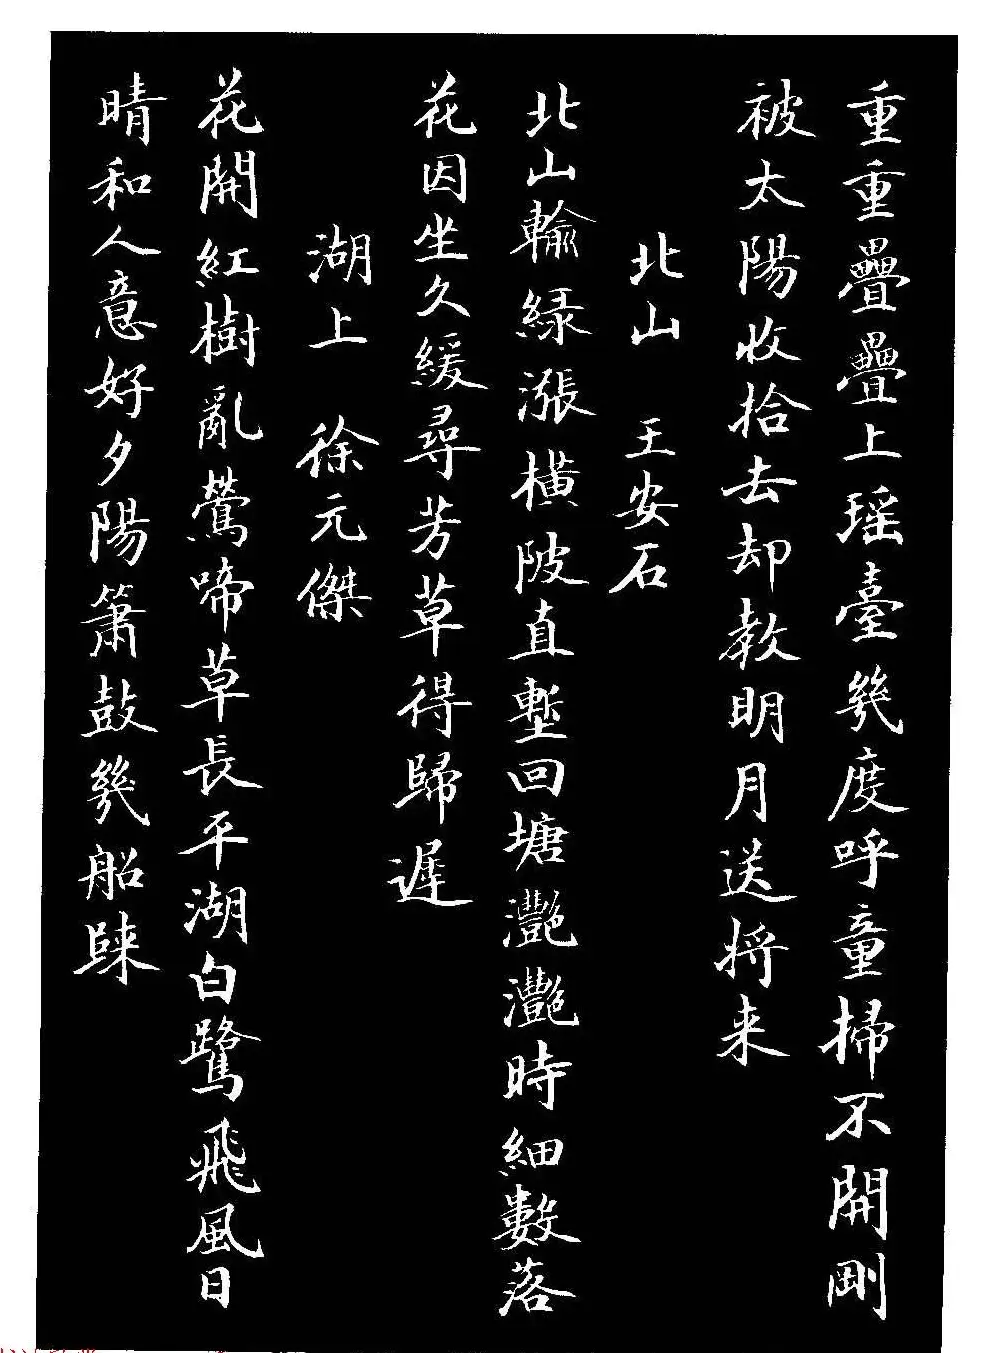 重重疊疊上瑶臺幾度呼童掃不開剛
被太陽收拾去却教明月送将来
北山 王安石
北山輸緑漲橫陂直塹回塘灩灩時細數落
花因坐久緩尋芳草得歸遲
湖上 徐元傑
花開紅樹亂鶯啼草長平湖白鷺飛風日
晴和人意好夕陽簫鼓幾船歸